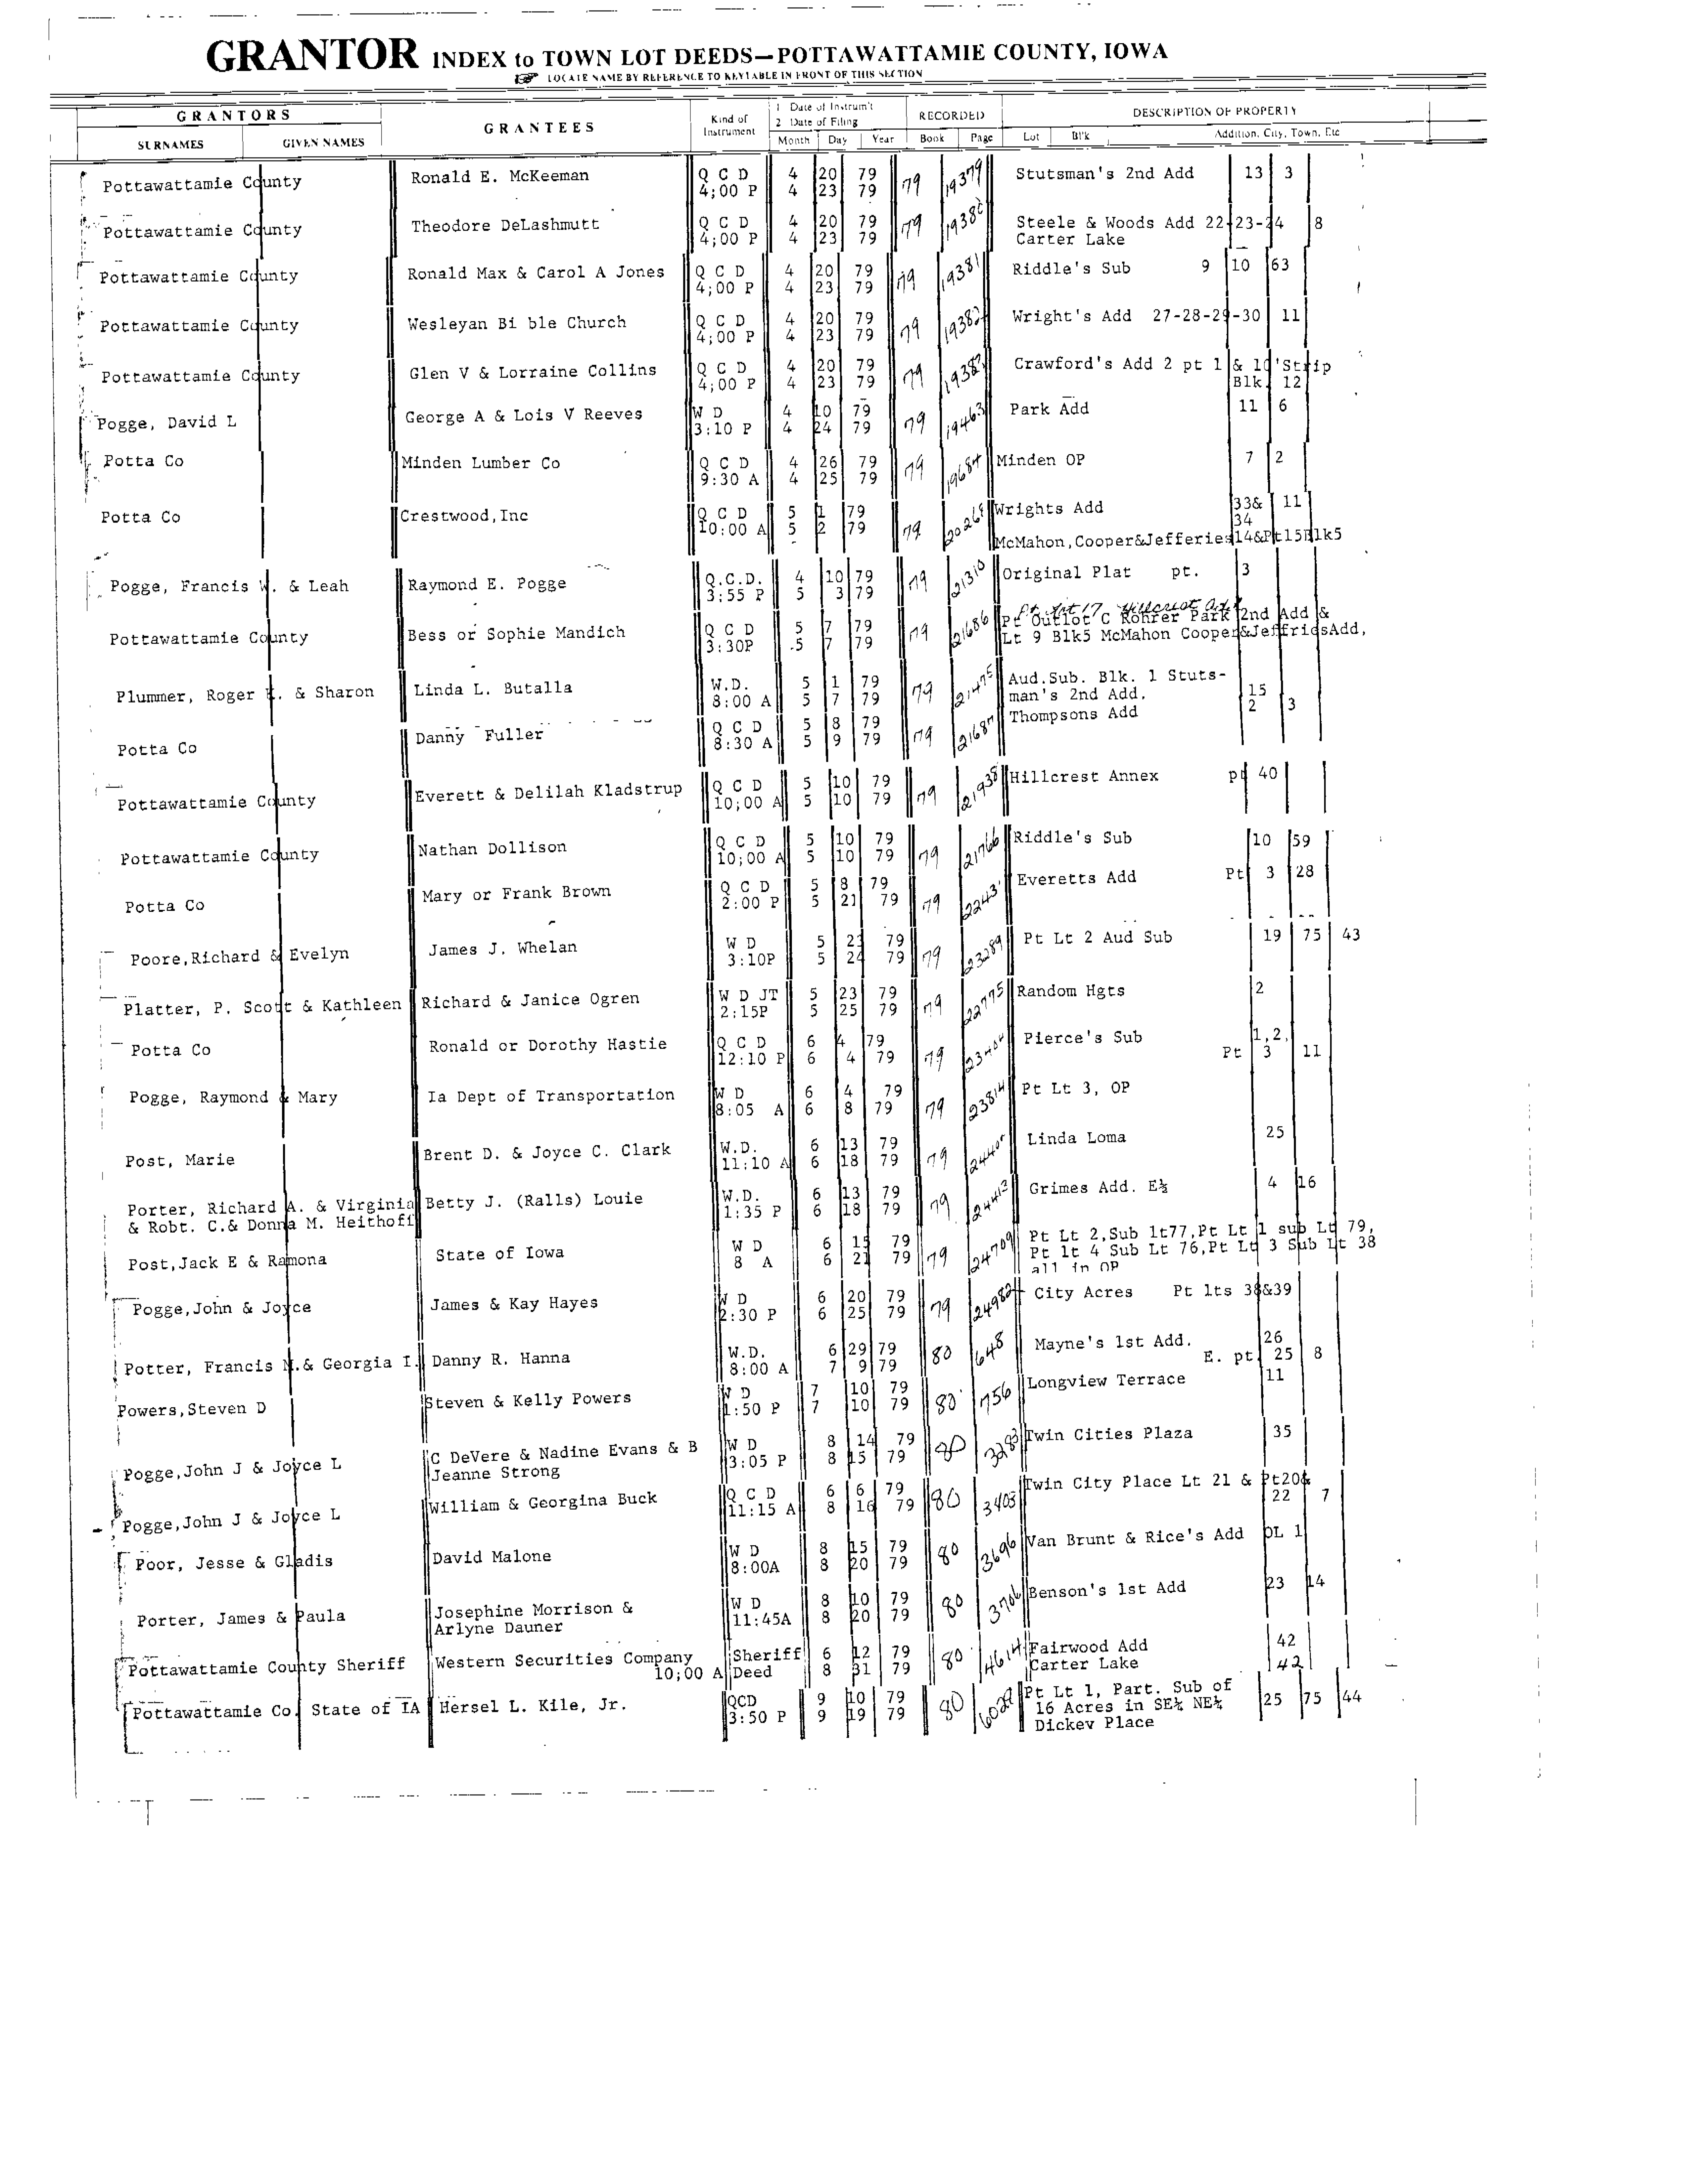 GRANTOR INDEX to TOWN LOT DEEDS—POTTAWATTAMIE COUNTY, IOWA
LOCATE NAME BY REFERENCE TO KEYTABLE IN FRONT OF THIS SECTION
GRANTORS GRANTEES Kind of Instrument 1 Date of Instrum't 2 Date of Filing RECORDED DESCRIPTION OF PROPERTY
SURNAMES GIVEN NAMES Month Day Year Book Page Lot Blk Addition, City, Town, Etc
Pottawattamie County Ronald E. McKeeman Q C D 4 20 79 79 19379 Stutsman's 2nd Add 13 3
4;00 P 4 23 79
Pottawattamie County Theodore DeLashmutt Q C D 4 20 79 79 Steele & Woods Add 22-23-24 8
4;00 P 4 23 79 Carter Lake
Pottawattamie County Ronald Max & Carol A Jones Q C D 4 20 79 79 19381 Riddle's Sub 9 10 63
4;00 P 4 23 79
Pottawattamie County Wesleyan Bi ble Church Q C D 4 20 79 79 19382 Wright's Add 27-28-29-30 11
4;00 P 4 23 79
Pottawattamie County Glen V & Lorraine Collins Q C D 4 20 79 79 Crawford's Add 2 pt 1 & 10'Strip
4;00 P 4 23 79 Blk 12
Pogge, David L George A & Lois V Reeves W D 4 10 79 79 19463 Park Add 11 6
3:10 P 4 24 79
Potta Co Minden Lumber Co Q C D 4 26 79 79 19684 Minden OP 7 2
9:30 A 4 25 79
Potta Co Crestwood,Inc Q C D 5 1 79 79 20269 Wrights Add 33& 11
10:00 A 5 2 79 34
McMahon,Cooper&Jefferies14&Pt15Blk5
Pogge, Francis W. & Leah Raymond E. Pogge Q.C.D. 4 10 79 79 21310 Original Plat pt. 3
3:55 P 5 3 79
Pt Lot 17 Hillcrest Add
Pottawattamie County Bess or Sophie Mandich Q C D 5 7 79 79 21686 Pt Outlot C Rohrer Park 2nd Add &
3:30P 5 7 79 Lt 9 Blk5 McMahon Cooper&JeffriesAdd,
Plummer, Roger K. & Sharon Linda L. Butalla W.D. 5 1 79 79 21475 Aud.Sub. Blk. 1 Stuts-
8:00 A 5 7 79 man's 2nd Add. 15
Potta Co Danny Fuller Q C D 5 8 79 79 21687 Thompsons Add 2 3
8:30 A 5 9 79
Pottawattamie County Everett & Delilah Kladstrup Q C D 5 10 79 79 21935 Hillcrest Annex pt 40
10;00 A 5 10 79
Pottawattamie County Nathan Dollison Q C D 5 10 79 79 21766 Riddle's Sub 10 59
10;00 A 5 10 79
Potta Co Mary or Frank Brown Q C D 5 8 79 79 Everetts Add Pt 3 28
2:00 P 5 21 79
Poore,Richard & Evelyn James J. Whelan W D 5 23 79 79 23289 Pt Lt 2 Aud Sub 19 75 43
3:10P 5 24 79
Platter, P. Scott & Kathleen Richard & Janice Ogren W D JT 5 23 79 79 22775 Random Hgts 2
2:15P 5 25 79
Potta Co Ronald or Dorothy Hastie Q C D 6 4 79 79 23404 Pierce's Sub 1,2,
12:10 P 6 4 79 Pt 3 11
Pogge, Raymond & Mary Ia Dept of Transportation W D 6 4 79 79 23814 Pt Lt 3, OP
8:05 A 6 8 79
Post, Marie Brent D. & Joyce C. Clark W.D. 6 13 79 79 Linda Loma 25
11:10 A 6 18 79
Porter, Richard A. & Virginia Betty J. (Ralls) Louie W.D. 6 13 79 79 24413 Grimes Add. E½ 4 16
& Robt. C.& Donna M. Heithoff 1:35 P 6 18 79
Post,Jack E & Ramona State of Iowa W D 6 15 79 79 24709 Pt Lt 2,Sub lt77,Pt Lt 1 sub Lt 79,
8 A 6 21 79 Pt lt 4 Sub Lt 76,Pt Lt 3 Sub Lt 38
all in OP
Pogge,John & Joyce James & Kay Hayes W D 6 20 79 79 24982 City Acres Pt lts 38&39
2:30 P 6 25 79
Potter, Francis M.& Georgia I. Danny R. Hanna W.D. 6 29 79 80 648 Mayne's 1st Add. 26
8:00 A 7 9 79 E. pt 25 8
Powers,Steven D Steven & Kelly Powers W D 7 10 79 80 756 Longview Terrace 11
1:50 P 7 10 79
Pogge,John J & Joyce L C DeVere & Nadine Evans & B W D 8 14 79 80 3283 Twin Cities Plaza 35
Jeanne Strong 3:05 P 8 15 79
Pogge,John J & Joyce L William & Georgina Buck Q C D 6 6 79 80 3403 Twin City Place Lt 21 & Pt20&
11:15 A 8 16 79 22 7
Poor, Jesse & Gladis David Malone W D 8 15 79 80 3696 Van Brunt & Rice's Add OL 1
8:00A 8 20 79
Porter, James & Paula Josephine Morrison & W D 8 10 79 80 3706 Benson's 1st Add 23 14
Arlyne Dauner 11:45A 8 20 79
Pottawattamie County Sheriff Western Securities Company Sheriff 6 12 79 80 4614 Fairwood Add 42
10;00 A Deed 8 31 79 Carter Lake 42
Pottawattamie Co. State of IA Hersel L. Kile, Jr. QCD 9 10 79 80 6029 Pt Lt 1, Part. Sub of 25 75 44
3:50 P 9 19 79 16 Acres in SE¼ NE¼
Dickey Place